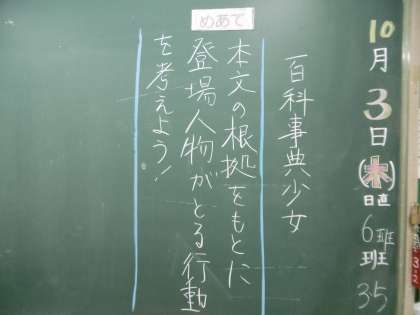 10月3日(木)
日直
6班
班
35
百科事典少女
めあて
本文の根拠をもとに
登場人物がとる行動
を考えよう!